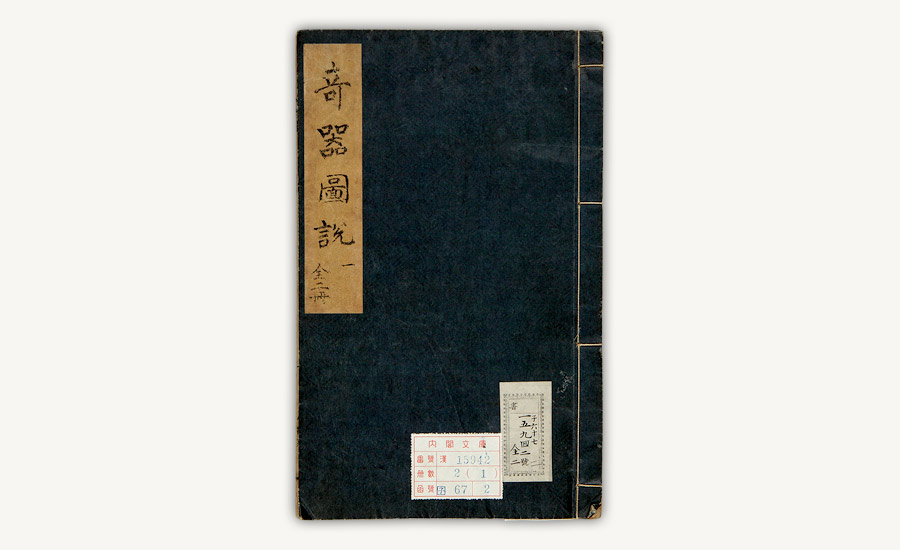 奇器圖說
一
全二冊
內閣文庫
番號 漢 15942
冊數 2(1)
函號 子 67 2
子六十七
一五九四二號
全二